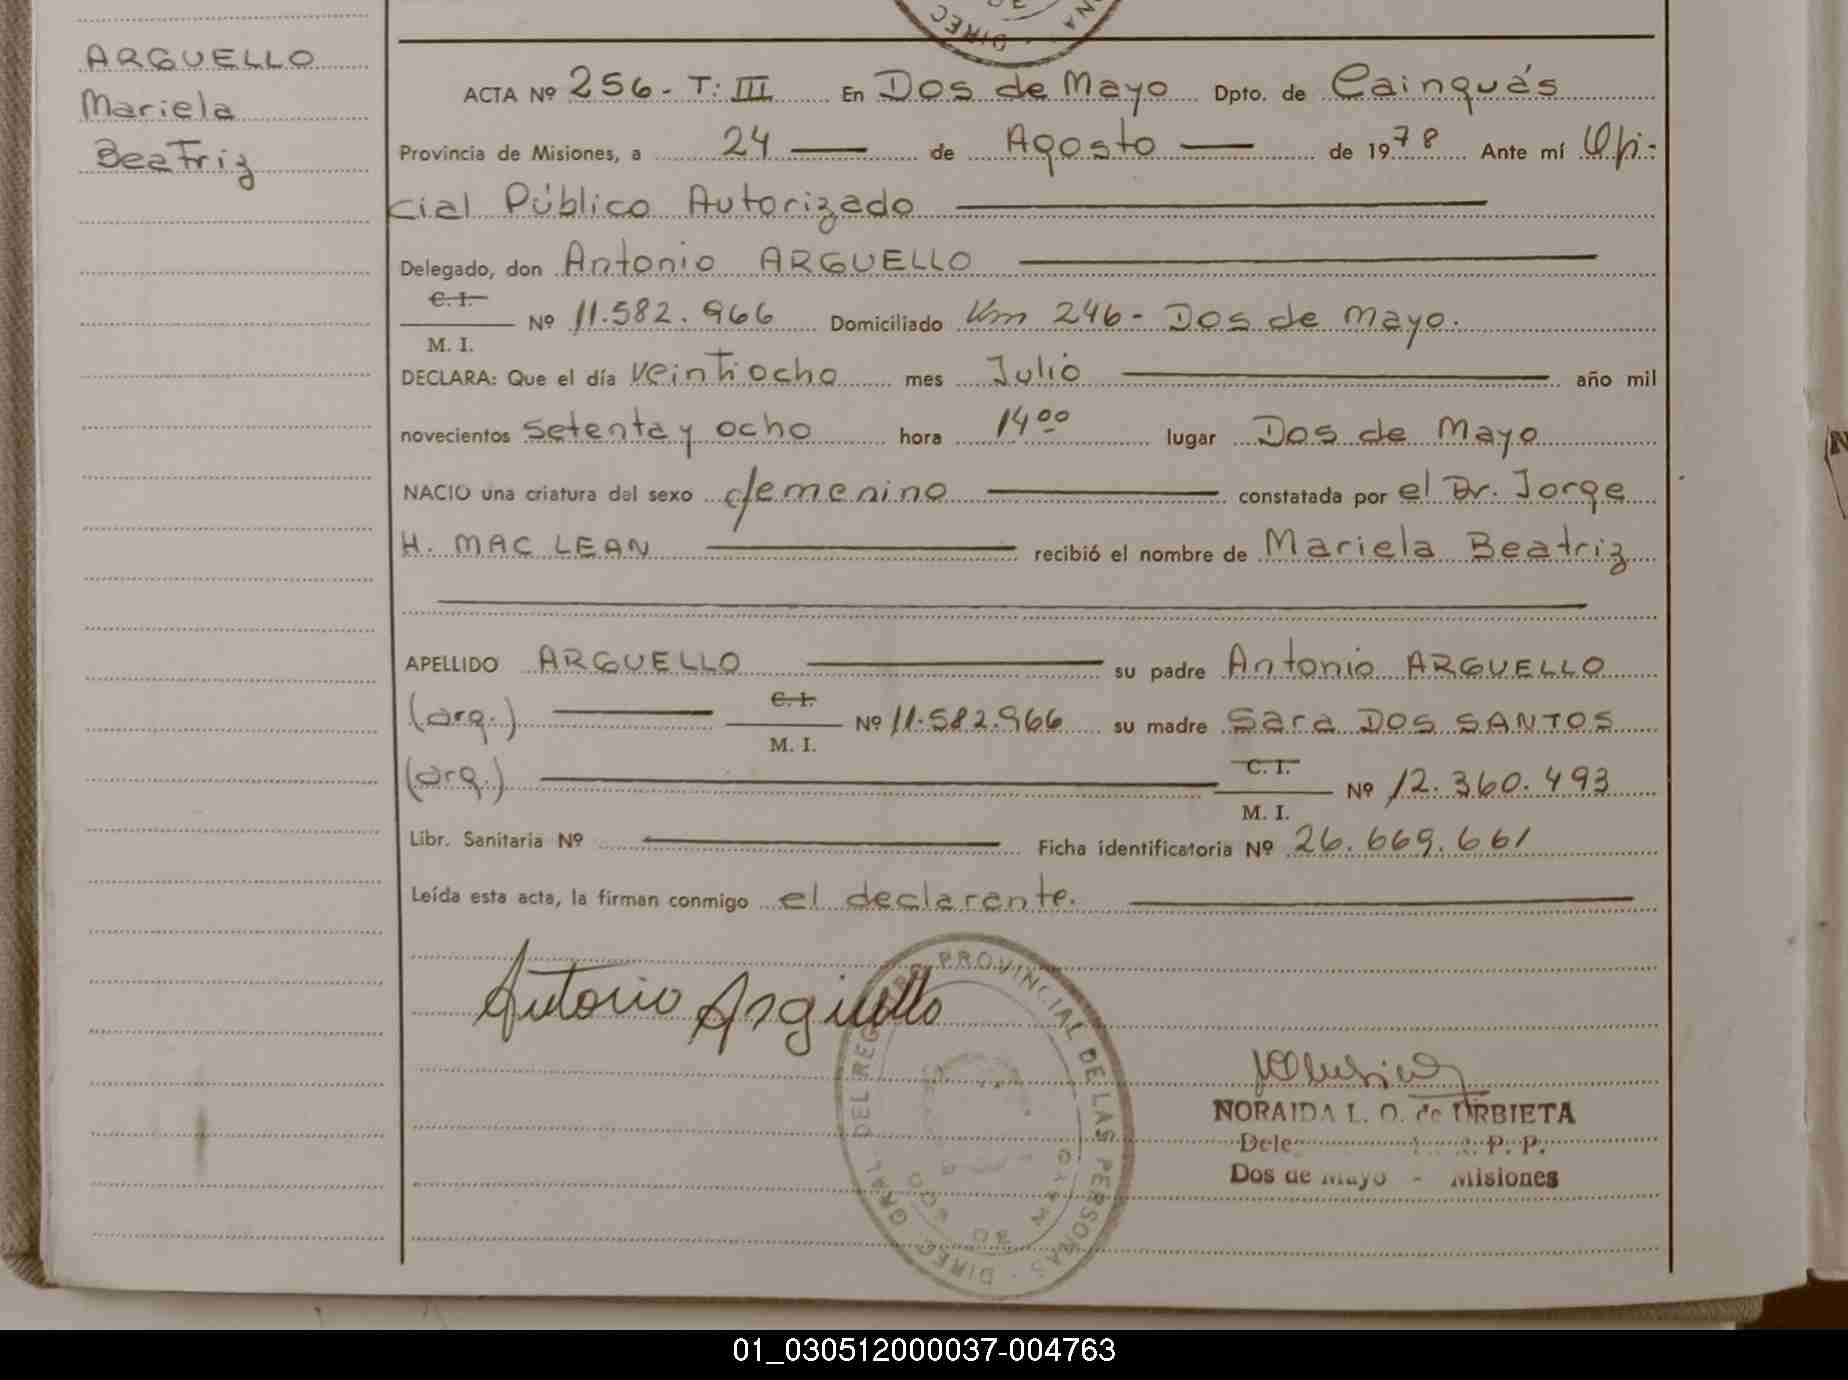 ARGUELLO
Mariela
Beatriz
DIREC
ACTA Nº 256- T: III En Dos de Mayo Dpto. de Cainguás
Provincia de Misiones, a 24 de Agosto de 1978 Ante mí Ofi-
cial Público Autorizado
Delegado, don Antonio ARGUELLO
C. I.
Nº 11.582.966 Domiciliado Km 246- Dos de Mayo.
M. I.
DECLARA: Que el día veintiocho mes Julio año mil
novecientos setenta y ocho hora 14 00 lugar Dos de Mayo
NACIO una criatura del sexo femenino constatada por el Dr. Jorge
H. MAC LEAN recibió el nombre de Mariela Beatriz
APELLIDO ARGUELLO su padre Antonio ARGUELLO
(arg.) C. I. Nº 11.582.966 su madre Sara DOS SANTOS
M. I.
(arg.) C. I. Nº 12.360.493
M. I.
Libr. Sanitaria Nº Ficha identificatoria Nº 26.669.661
Leída esta acta, la firman conmigo el declarante.
Antonio Arguello
DIREC. GRAL. DEL REG. PROVINCIAL DE LAS PERSONAS
DOS DE MAYO
NORAIDA L. O. de URBIETA
Dos de Mayo - Misiones
01_030512000037-004763